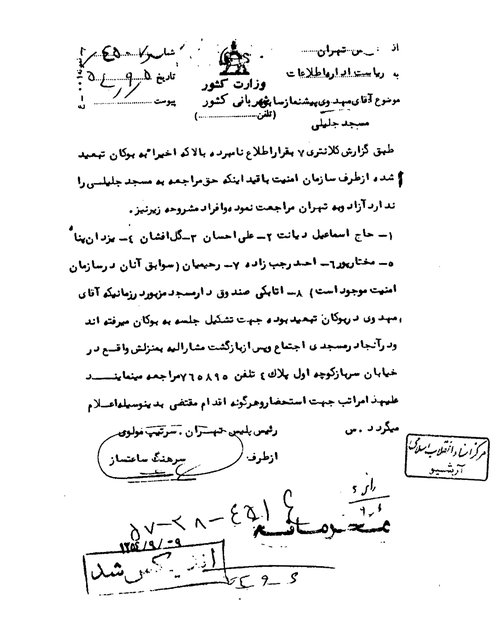 از پلیس تهران
به ریاست اداره اطلاعات
موضوع آقای مهدوی پیشنماز سابق
مسجد جلیلی
وزارت کشور
شهربانی کشور
(تلفن ............)
شماره
تاریخ
پیوست
طبق گزارش کلانتری ۷ بقرار اطلاع نامبرده بالا که اخیرا به بوکان تبعید
شده از طرف سازمان امنیت با قید اینکه حق مراجعه به مسجد جلیلی را
ندارد آزاد و به تهران مراجعت نموده و افراد مشروحه زیر نیز.
۱- حاج اسماعیل دیانت ۲- علی احسان ۳- گل افشان ۴- یزدان پناه
۵- مختارپور ۶- احمد رجب زاده ۷- رحیمیان (سوابق آنان در سازمان
امنیت موجود است) ۸- اتابکی صندوق دار مسجد مزبور زمانیکه آقای
مهدوی در بوکان تبعید بوده جهت تشکیل جلسه به بوکان میرفته اند
و در آنجا در مسجدی اجتماع و پس از بازگشت مشارالیه به منزلش واقع در
خیابان سرباز کوچه اول پلاک ٤ تلفن ۷۶۵۸۹۵ مراجعه مینمایند
علیهذا مراتب جهت استحضار و هرگونه اقدام مقتضی بدینوسیله اعلام
میگردد. س
رئیس پلیس تهران. سرتیپ مولوی
از طرف سرهنگ ساعتساز
مرکز اسناد انقلاب اسلامی
آرشیو
محرمانه